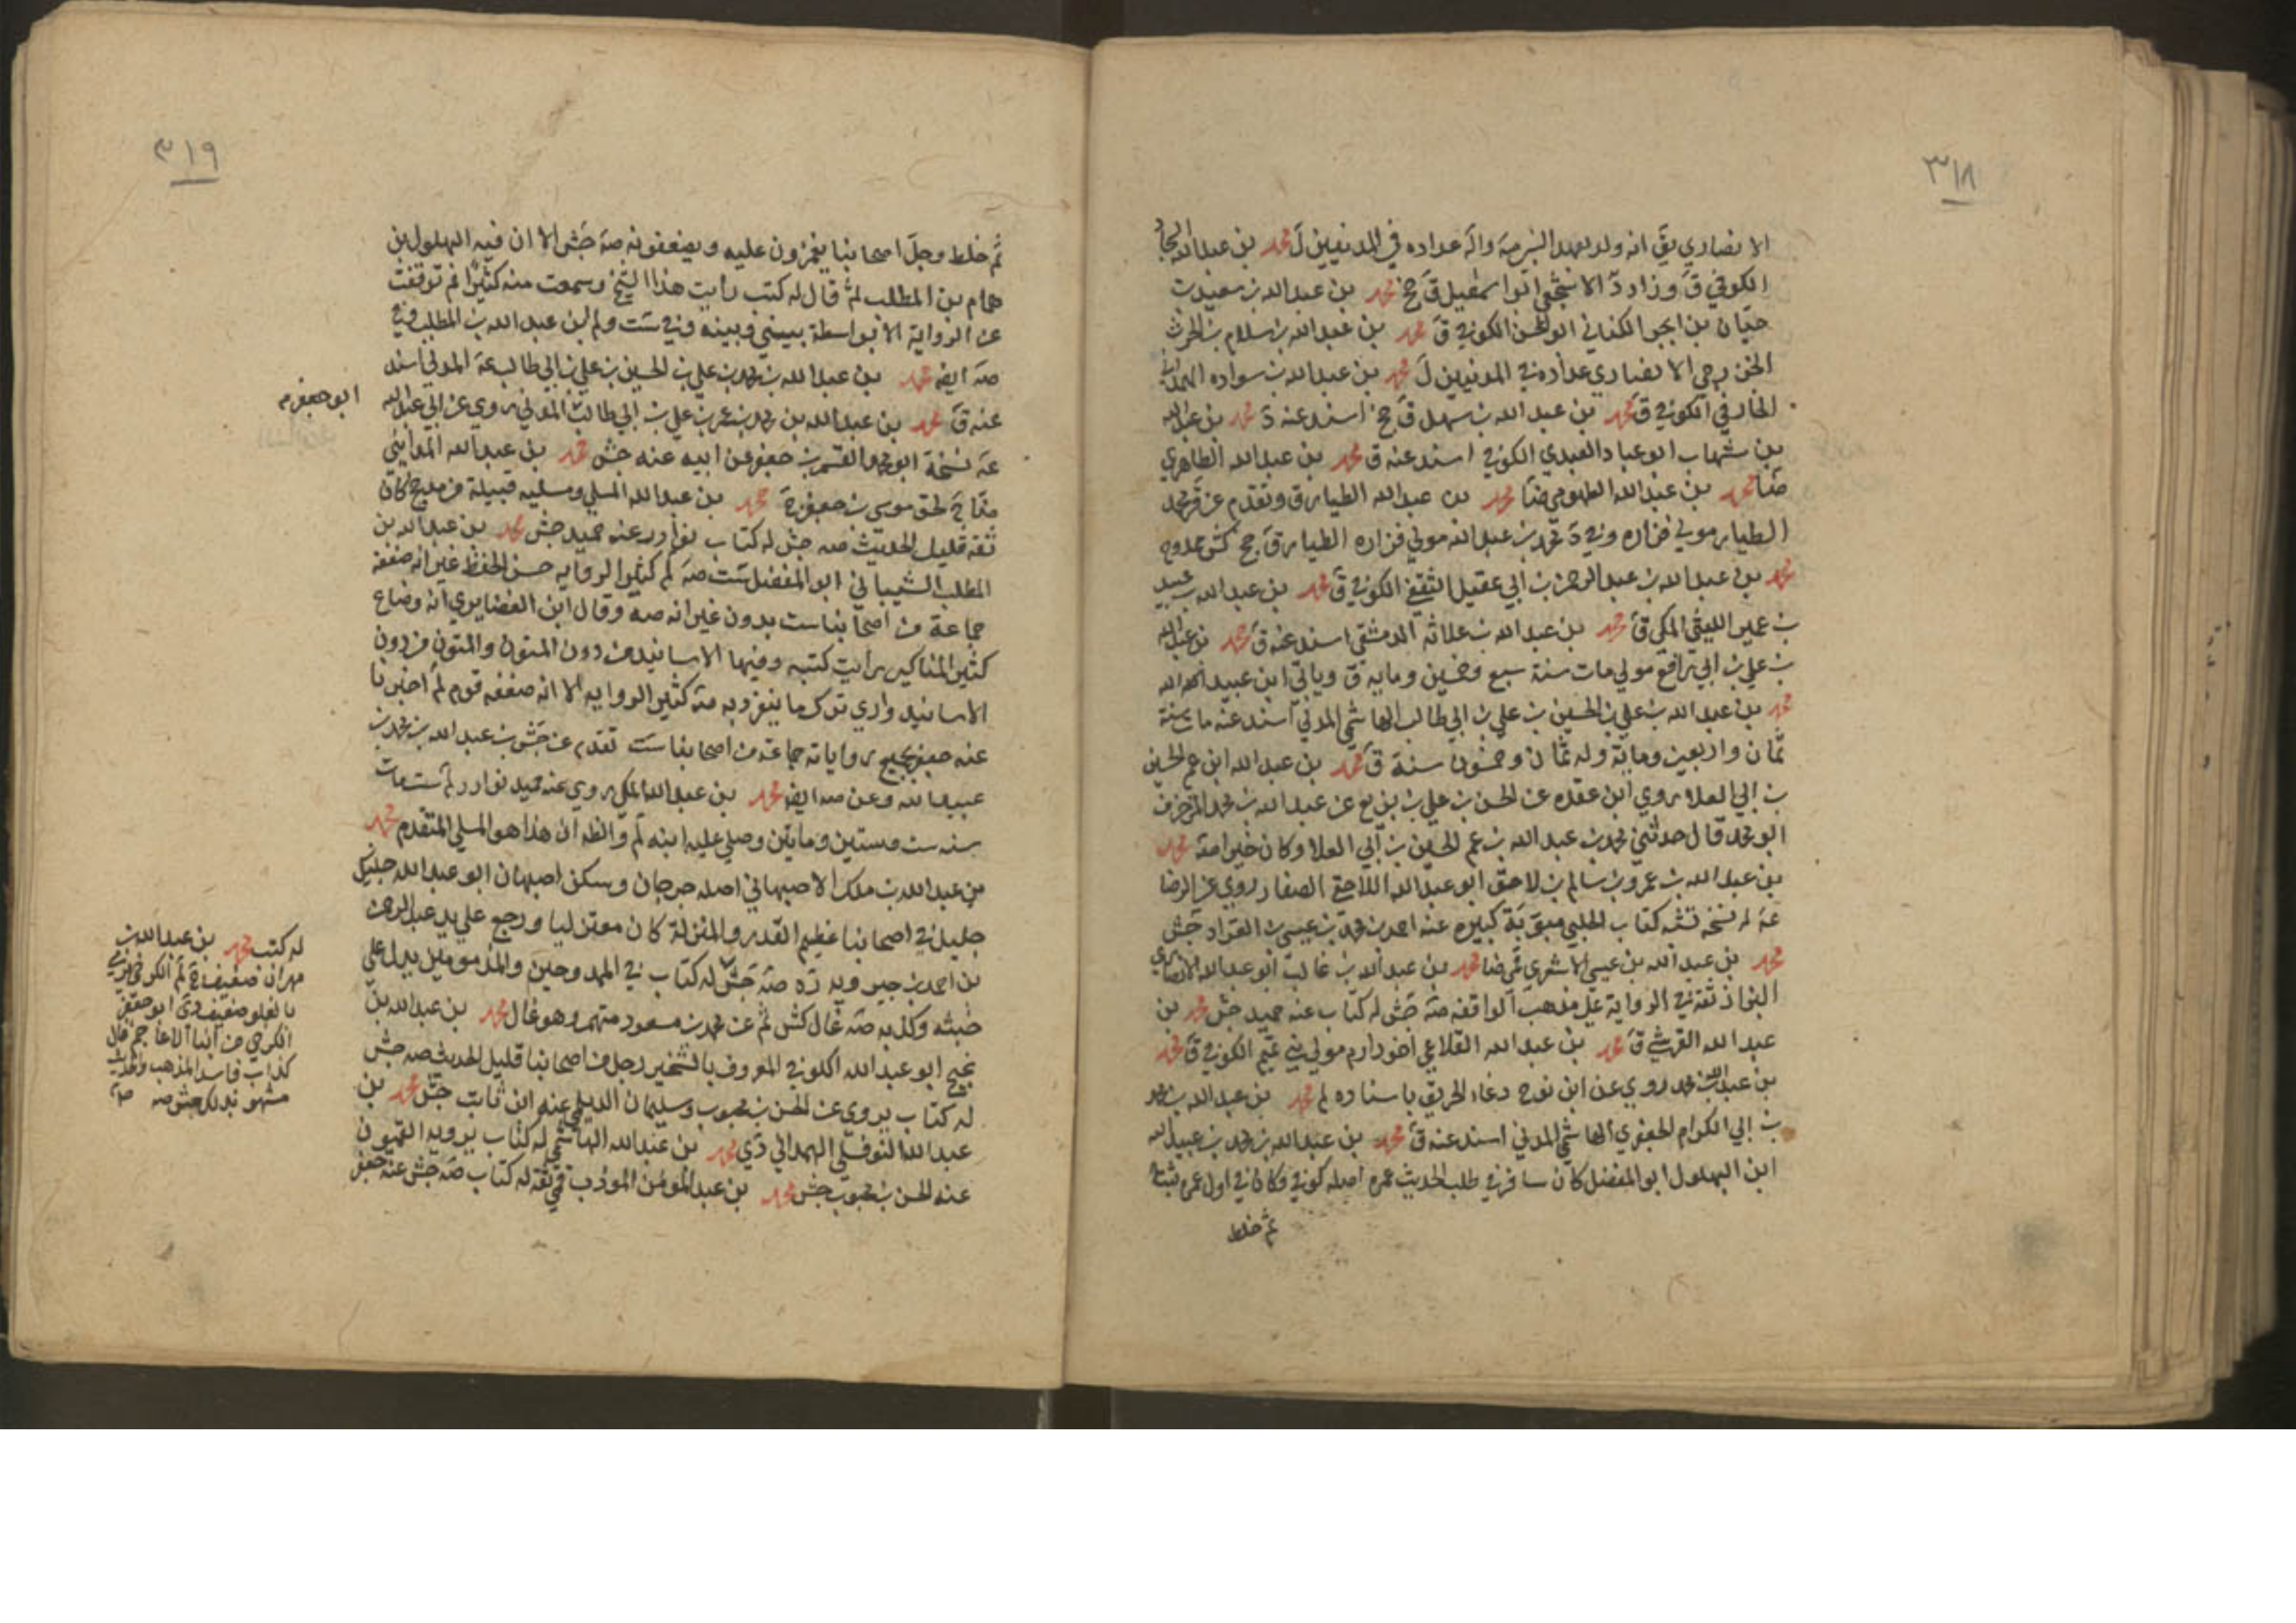 ٣١٨
الانصاري يق انه ولد بعهد النبي صه واله عداده في المدنيين ل محمد بن عبد الله
الكوفي ق وزاد د الاشجعي ابو اسمعيل ق جخ محمد بن عبد الله بن سعيد بن
حيان بن ابجر الكناني ابو الحسن الكوفي ق محمد بن عبد الله بن سلام بن الحرث
الخزرجي الانصاري عداده في المدنيين ل محمد بن عبد الله بن سواده الهمداني
الخارفي الكوفي ق محمد بن عبد الله بن سهل ق جخ اسند عنه د محمد بن عبد الله
بن شهاب ابو عباد العبدي الكوفي اسند عنه ق محمد بن عبد الله الطاهري
ضا محمد بن عبد الله الطهوي ضا محمد بن عبد الله الطيار ق وتقدم عن قر محمد
الطيار مولي فزاره وفي د محمد بن عبد الله مولي فزاره الطيار ق جخ كش ممدوح
محمد بن عبد الله بن عبد الرحمن بن ابي عقيل الثقفي الكوفي ق محمد بن عبد الله بن عبيد
بن عمير الليثي المكي ق محمد بن عبد الله بن علاثه الدمشقي اسند عنه ق محمد بن عبد الله
بن علي بن ابي رافع مولي مات سنة سبع وخمسين ومايه ق وياتي ابن عبيد الله
محمد بن عبد الله بن علي بن الحسين بن علي بن ابي طالب الهاشمي المدني اسند عنه مات سنة
ثمان واربعين ومايه وله ثمان وخمسون سنة ق محمد بن عبد الله ابن عم الحسين
بن ابي العلا روي ابن عقده عن الحسن بن علي بن بزيع عن عبد الله بن محمد المزخرف
ابو محمد قال حدثني محمد بن عبد الله بن عم الحسين بن ابي العلا وكان خيرا صه محمد
بن عبد الله بن عمرو بن سالم بن لاحق ابو عبد الله اللاحقي الصفار روي عن الرضا
عه له نسخه تشبه كتاب الحلبي مبوبة كبيره عنه احمد بن محمد بن عيسى بن العراد جش
محمد بن عبد الله بن عيسى الاشعري قمي ضا محمد بن عبد الله بن غالب ابو عبد الله الانصاري
البزاز ثقة في الرواية على مذهب الواقفه صه جش له كتاب عنه حميد جش محمد بن
عبد الله القرشي ق محمد بن عبد الله القلاعي اخو دارم مولي بني تميم الكوفي ق محمد
بن عبد الله بن محمد روي عن ابن نوح دعاء الحريق باسناده لم محمد بن عبد الله بن محمد
بن ابي الكرام الجعفري الهاشمي المدني اسند عنه ق محمد بن عبد الله بن محمد بن عبيد الله
ابن البهلول ابو المفضل كان سافر في طلب الحديث عمره اصله كوفي وكان في اول عمره ثبتا
ثم خلط
٣١٩
ثم خلط وجل اصحابنا يغمزون عليه ويضعفونه صه جش الا ان فيه البهلول بن
همام بن المطلب ثم قال له كتب رأيت هذا الشيخ وسمعت منه كثيرا ثم توقفت
عن الرواية الا بواسطة بيني وبينه وفي ست ولم ابن عبد الله بن المطلب وفي
صه ايضه محمد بن عبد الله بن محمد بن علي بن الحسين بن علي بن ابي طالب عه المدني اسند
عنه ق محمد بن عبد الله بن محمد بن عمر بن علي بن ابي طالب المدني روي عن ابي عبد الله
ابو جعفر م
عه نسخة ابو محمد القسم بن جعفر عن ابيه عنه جش محمد بن عبد الله المدايني
لحق موسى بن جعفر محمد بن عبد الله المسلي ومسليه قبيلة من مذحج كان
ثقه قليل الحديث صه جش له كتاب نوادر عنه حميد جش محمد بن عبد الله بن
المطلب الشيباني ابو المفضل ست صه لم كثير الروايه حسن الحفظ غير انه ضعفه
جماعة من اصحابنا ست بدون غير انه صه وقال ابن الغضايري انه وضاع
كثير المناكير رأيت كتبه وفيها الاسانيد من دون المتون والمتون من دون
الاسانيد واري ترك ما ينفرد به صه كثير الروايه الا انه ضعفه قوم لم اخبرنا
عنه جميع رواياته جماعة من اصحابنا ست تقدم عن جش بن عبد الله بن محمد بن
عبيد الله وعن صه ايضه محمد بن عبد الله المسلي روي عنه حميد نوادر لم ست مات
سنه ست وستين ومايتين وصلي عليه ابنه لم والظه ان هذا هو المسلي المتقدم محمد
بن عبد الله بن مملك الاصبهاني اصله جرجان وسكن اصبهان ابو عبد الله جليل
جليل في اصحابنا عظيم القدر والمنزلة كان معتزليا ورجع علي يد عبد الرحمن
بن احمد بن جبرويه ره صه جش له كتاب في الممدوحين والمذمومين يدل على
خبثه وكذبه صه غال كش ثم عن محمد بن مسعود متهم وهو غال محمد بن عبد الله بن
نجيح ابو عبد الله الكوفي المعروف بالشخير رجل من اصحابنا قليل الحديث صه جش
له كتاب يروي عن الحسن بن محبوب وسليمان الديلمي عنه ابن ثابت جش محمد بن
عبد الله النوفلي الهمداني دي محمد بن عبد الله الهاشمي له كتاب يرويه القميون
عنه الحسن بن محبوب جش محمد بن عبد المؤمن المؤدب قمي ثقه له كتاب صه جش عنه جعفر
له كتب محمد بن عبد الله بن
مهران ضعيف لم الكوفي يرمي
بالغلو ضعيف دي ابو جعفر
الكرخي من ابناء الاعاجم غال
كذاب فاسد المذهب والحديث
مشهور بذلك جش صه